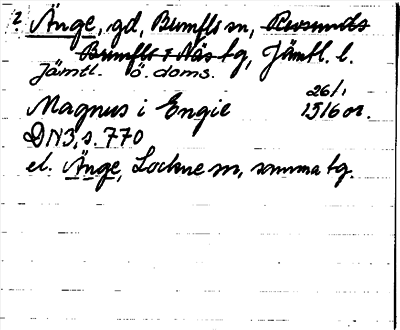 ? Änge, gd, Brunflo sn, Revsunds
Brunflo & Näs tg, Jämtl. l.
Jämtl. ö. doms.
Magnus i Engie 26/1 1516 or.
DN3, s. 770
el. Änge, Lockne sn, samma tg.